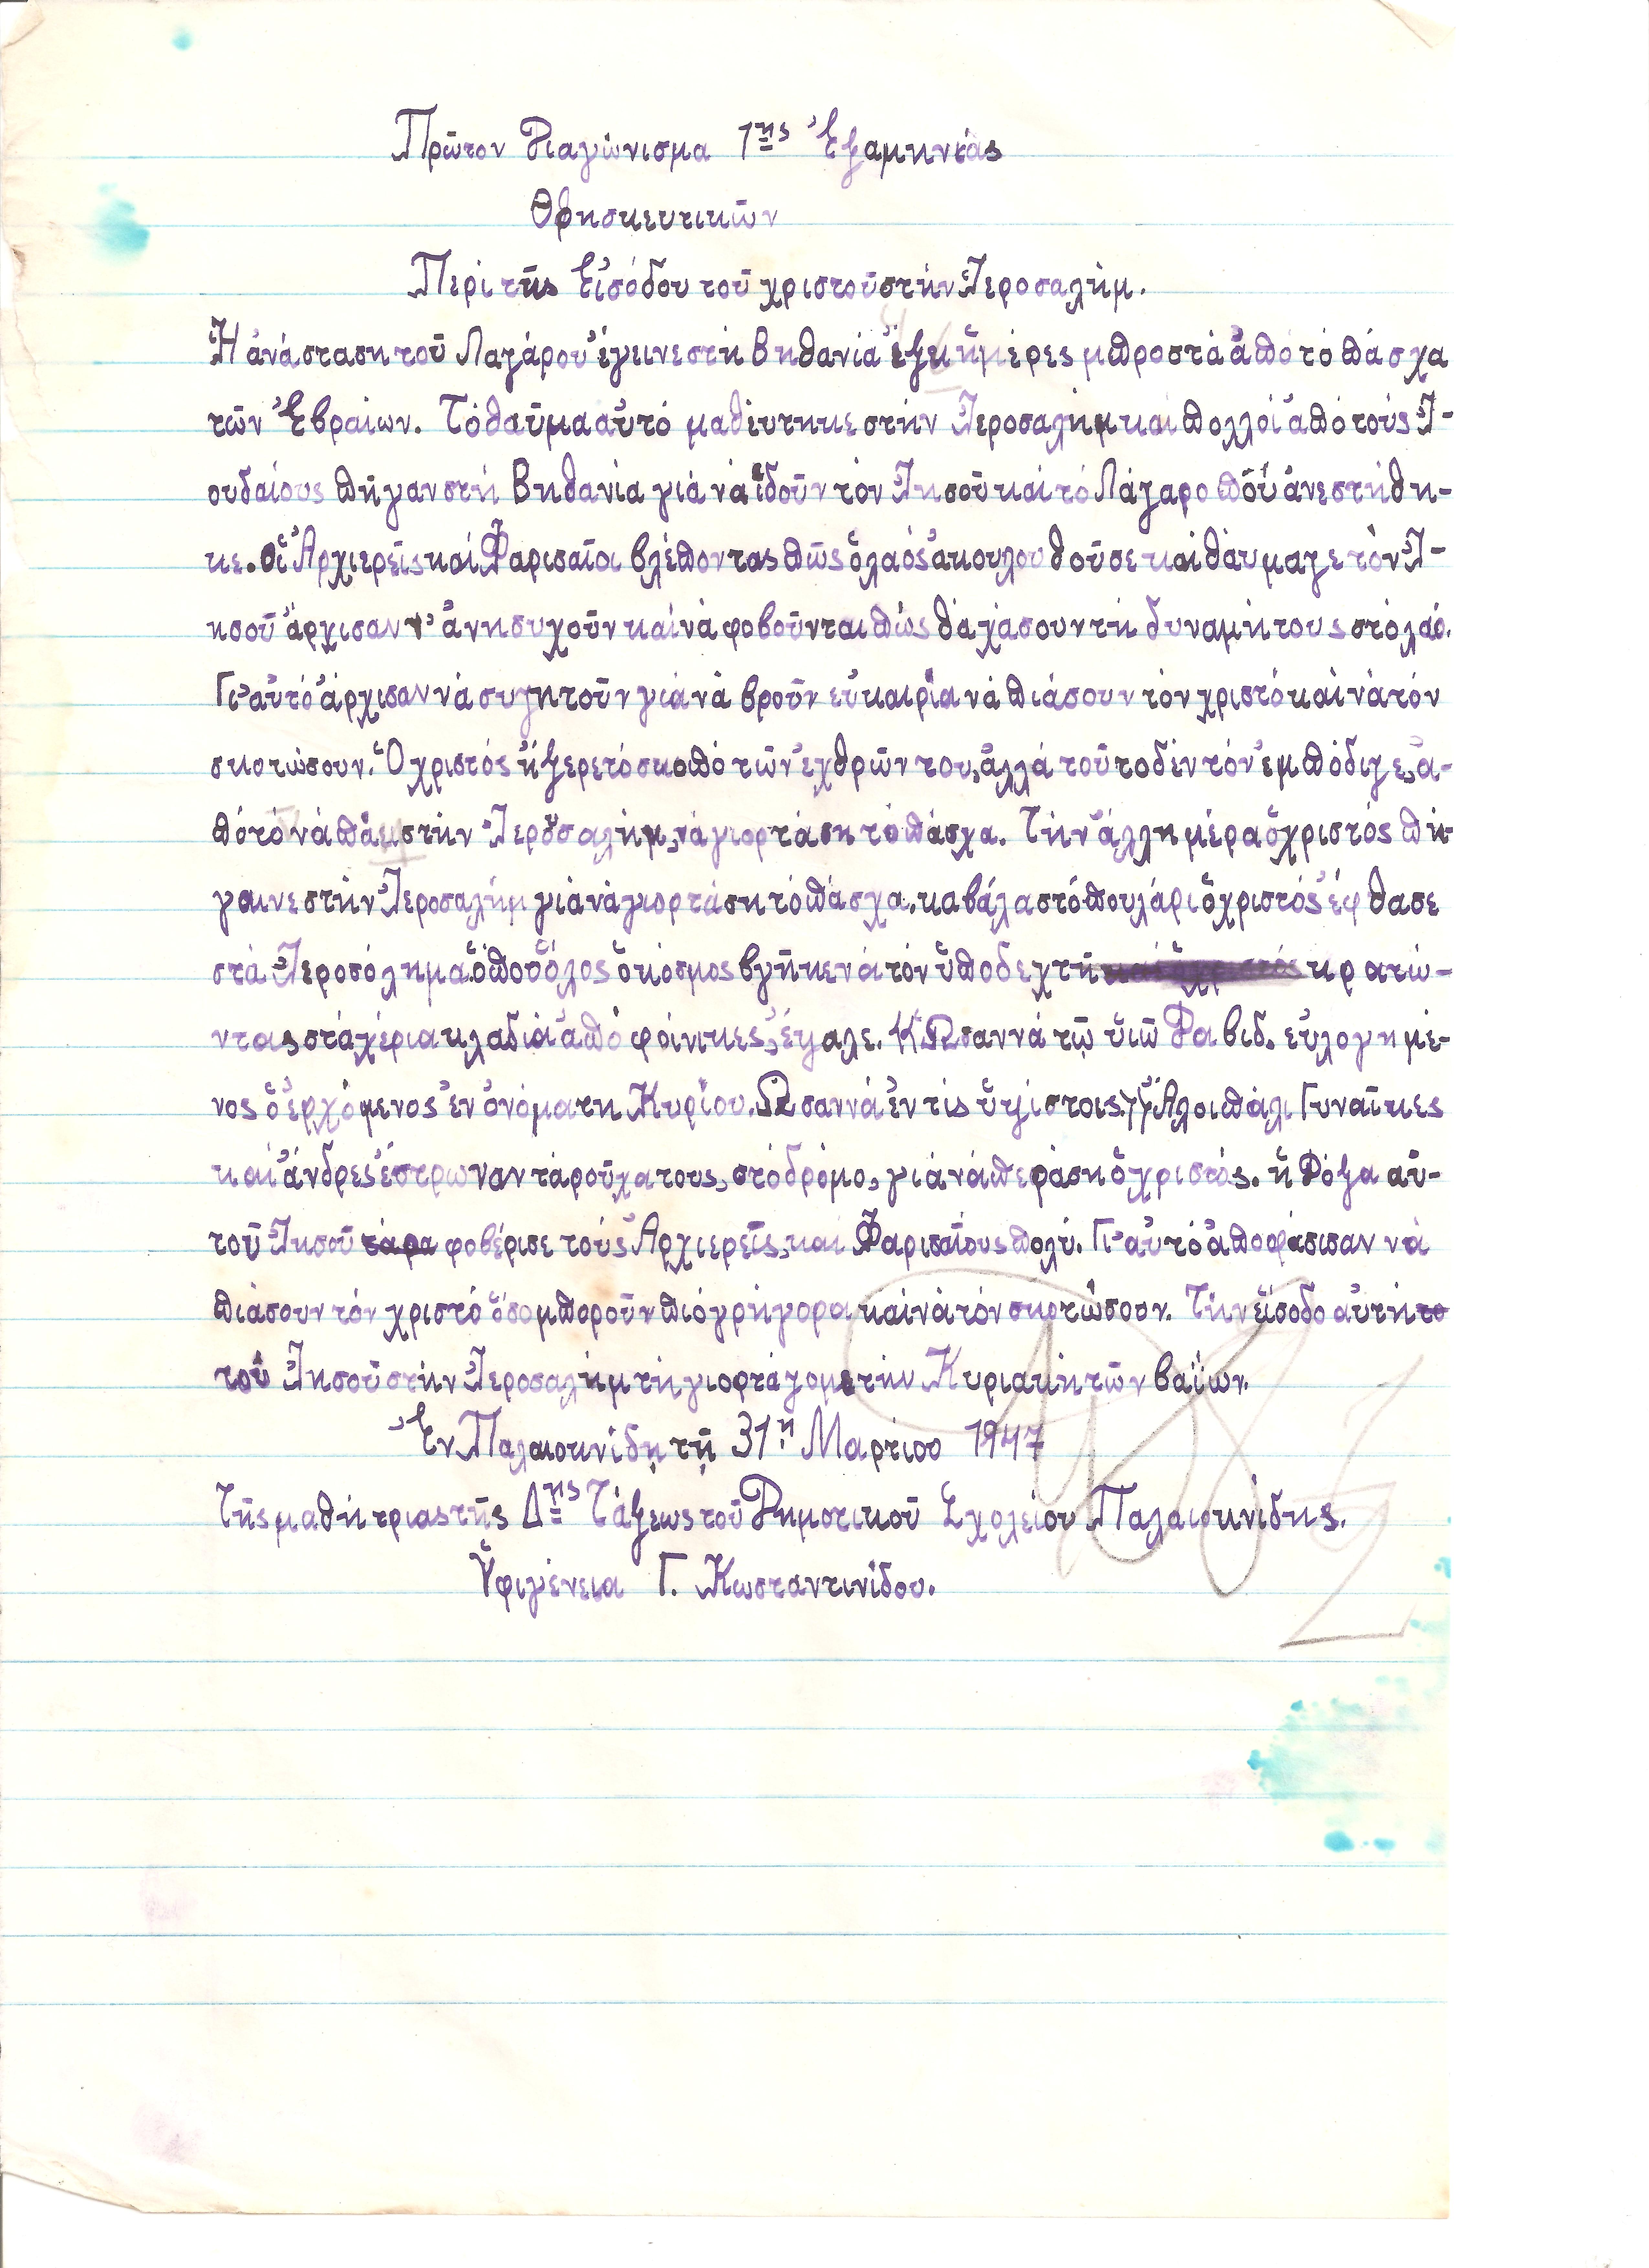 Πρῶτον Διαγώνισμα 1ης Ἑξαμηνιάς
Θρησκευτικῶν
Περί τῆς Εἰσόδου τοῦ χριστοῦ στήν Ἱεροσαλήμ.
Ἡ ἀνάσταση τοῦ Λαζάρου ἔγεινε στή Βηθανία ἕξη ἡμέρες μπροστά ἀπό τό πάσχα
τῶν Ἑβραίων. Τό θαῦμα αὐτό μαθεύτηκε στήν Ἱεροσαλήμ καί πολλοί ἀπό τούς Ἰ-
ουδαίους πῆγαν στή Βηθανία γιά νά ἰδοῦν τόν Ἰησοῦ καί τό Λάζαρο πού ἀνεστήθη-
κε. οἱ Ἀρχιερεῖς καί Φαρισαῖοι βλέποντας πῶς ὁ λαός ἀκουλουθοῦσε καί θάυμαζε τόν Ἰ-
ησοῦ ἄρχισαν ν' ἀνησυχοῦν καί νά φοβοῦνται πώς θά χάσουν τή δυναμή τους στό λαό.
Γι' αὐτό ἄρχισαν νά συζητοῦν γιά νά βροῦν εὐκαιρία νά πιάσουν τόν χριστό καί νά τόν
σκοτώσουν. Ὁ χριστός ἤξερε τό σκοπό τῶν ἐχθρῶν του, ἀλλά τοῦτο δέν τόν ἐμπόδιζε, ἀ-
πό τό νά πάη στήν Ἱεροσαλήμ, νά γιορτάση τό πάσχα. Τήν ἄλλη μέρα ὁ χριστός πή-
γαινε στήν Ἱεροσαλήμ γιά νά γιορτάση τό πάσχα. καβάλα στό πουλάρι ὁ χριστός ἔφθασε
στά Ἱεροσόλημα ὅπου ὅλος ὁ κόσμος βγῆκε νά τόν ὑποδεχτῆ κρατώ-
ντας στά χέρια κλαδιά ἀπό φοίνικες, ἔψαλε. «Ὡσαννά τῷ ὑιῷ Δαβιδ. εὐλογημέ-
νος ὁ ἐρχόμενος ἐν ὀνόματη Κυρίου. Ὡσαννά ἐν τίς ὑψίστοις» Ἄλοι πάλι Γυναῖκες
καί ἄνδρες ἔστρωναν τά ροῦχα τους, στό δρόμο, γιά νά περάση ὁ χριστός. ἡ Δόξα αὐ-
τοῦ Ἰησοῦ φοβέρισε τούς Ἀρχιερεῖς, καί Φαρισαίους πολύ. Γι' αὐτό ἀποφάσισαν νά
πιάσουν τόν χριστό ὅσο μποροῦν πιό γρήγορα καί νά τόν σκοτώσουν. Τήν εἴσοδο αὐτή το
τοῦ Ἰησοῦ στήν Ἱεροσαλήμ τή γιορτάζομε τήν Κυριακή τῶν βαΐων.
Ἐν Παλαιοκνίδῃ τῇ 31ῃ Μαρτίου 1947
Τῆς μαθήτριας τῆς Δης Τάξεως τοῦ Δημοτικοῦ Σχολείου Παλαιοκνίδης.
Ὑφιγένεια Γ. Κωσταντινίδου.